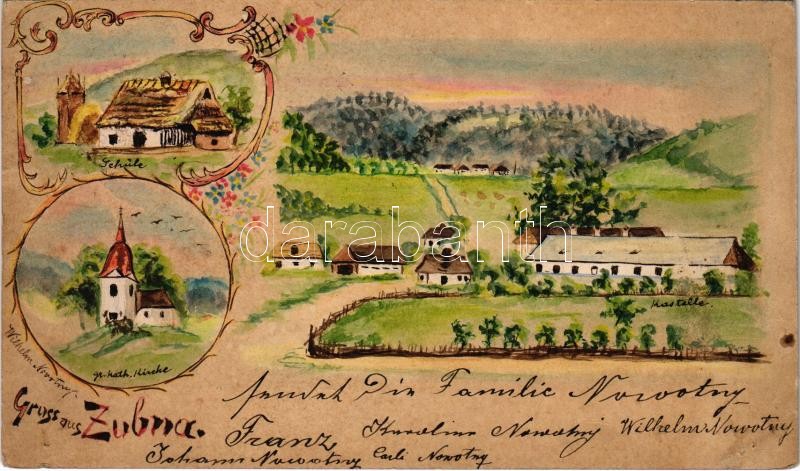 Schule
darabanth
Kastelle.
Gr. kath. Kirche
Wilhelm Nowotny.
Gruss aus Zubna.
sendet Die Familie Nowotny
Franz Karoline Nowotny Wilhelm Nowotny
Johann Nowotny Carli Nowotny